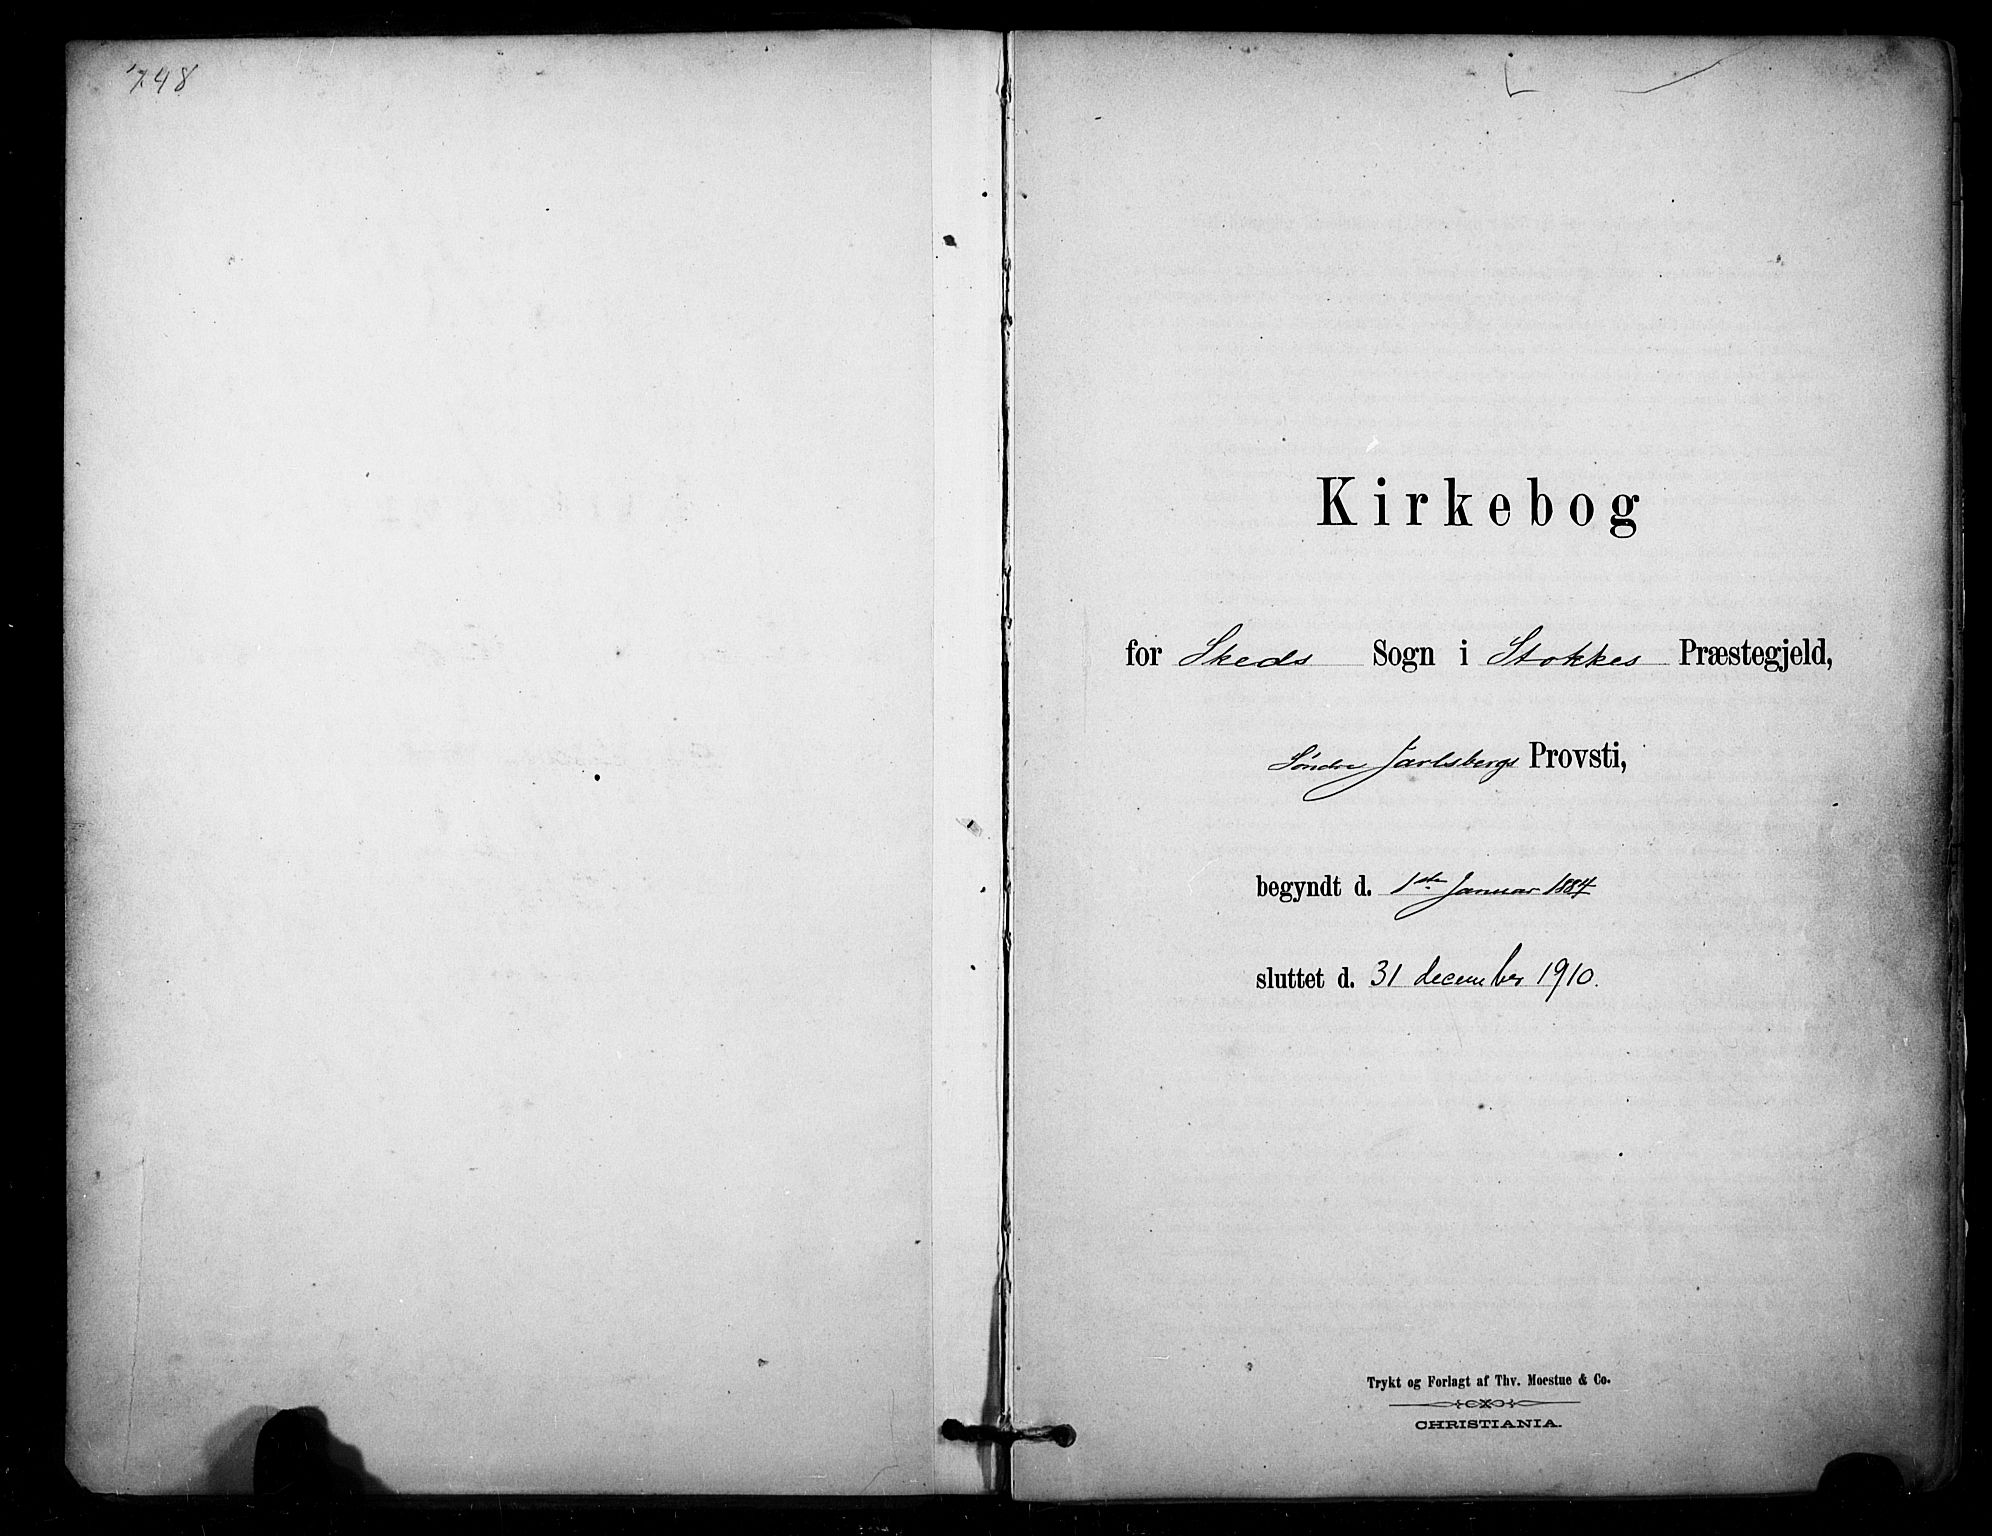 748
Kirkebog
for Skeds Sogn i Stokkes Præstegjeld,
Søndre Jarlsbergs Provsti,
begyndt d. 1ste Januar 1884
sluttet d. 31 december 1910.
Trykt og Forlagt af Thv. Moestue & Co.
CHRISTIANIA.